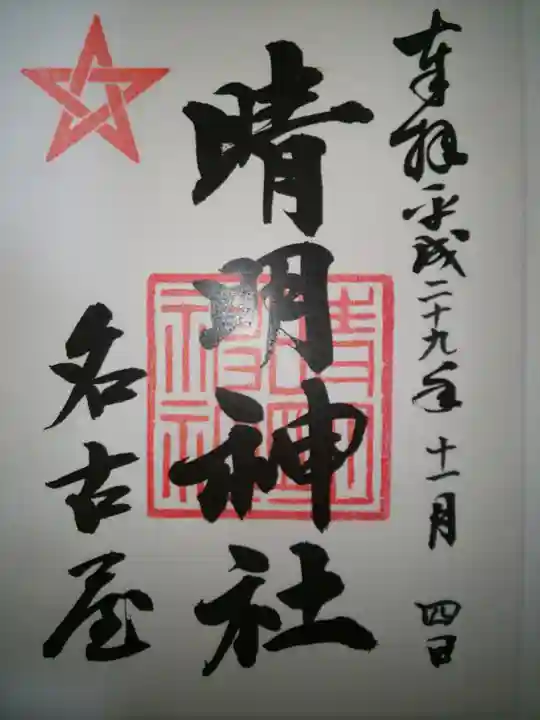 奉拝 平成二十九年 十一月 四日
晴明神社
名古屋
晴明神社